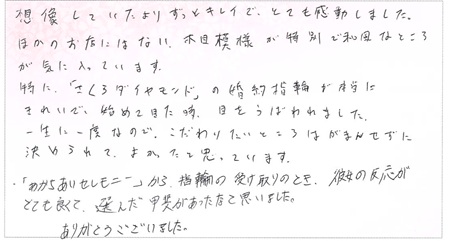 想像していたよりずっとキレイで、とても感動しました。
ほかのお店にはない、木目模様が特別で和風なところ
が気に入っています。
特に、「さくらダイヤモンド」の婚約指輪が本当に
きれいで、始めて見た時、目をうばわれました。
一生に一度なので、こだわりたいところはがまんせずに
決められて、よかったと思っています。
・「わかちあいセレモニー」から、指輪の受け取りのとき、彼女の反応が
とても良くて、選んだ甲斐があったなと思いました。
ありがとうございました。